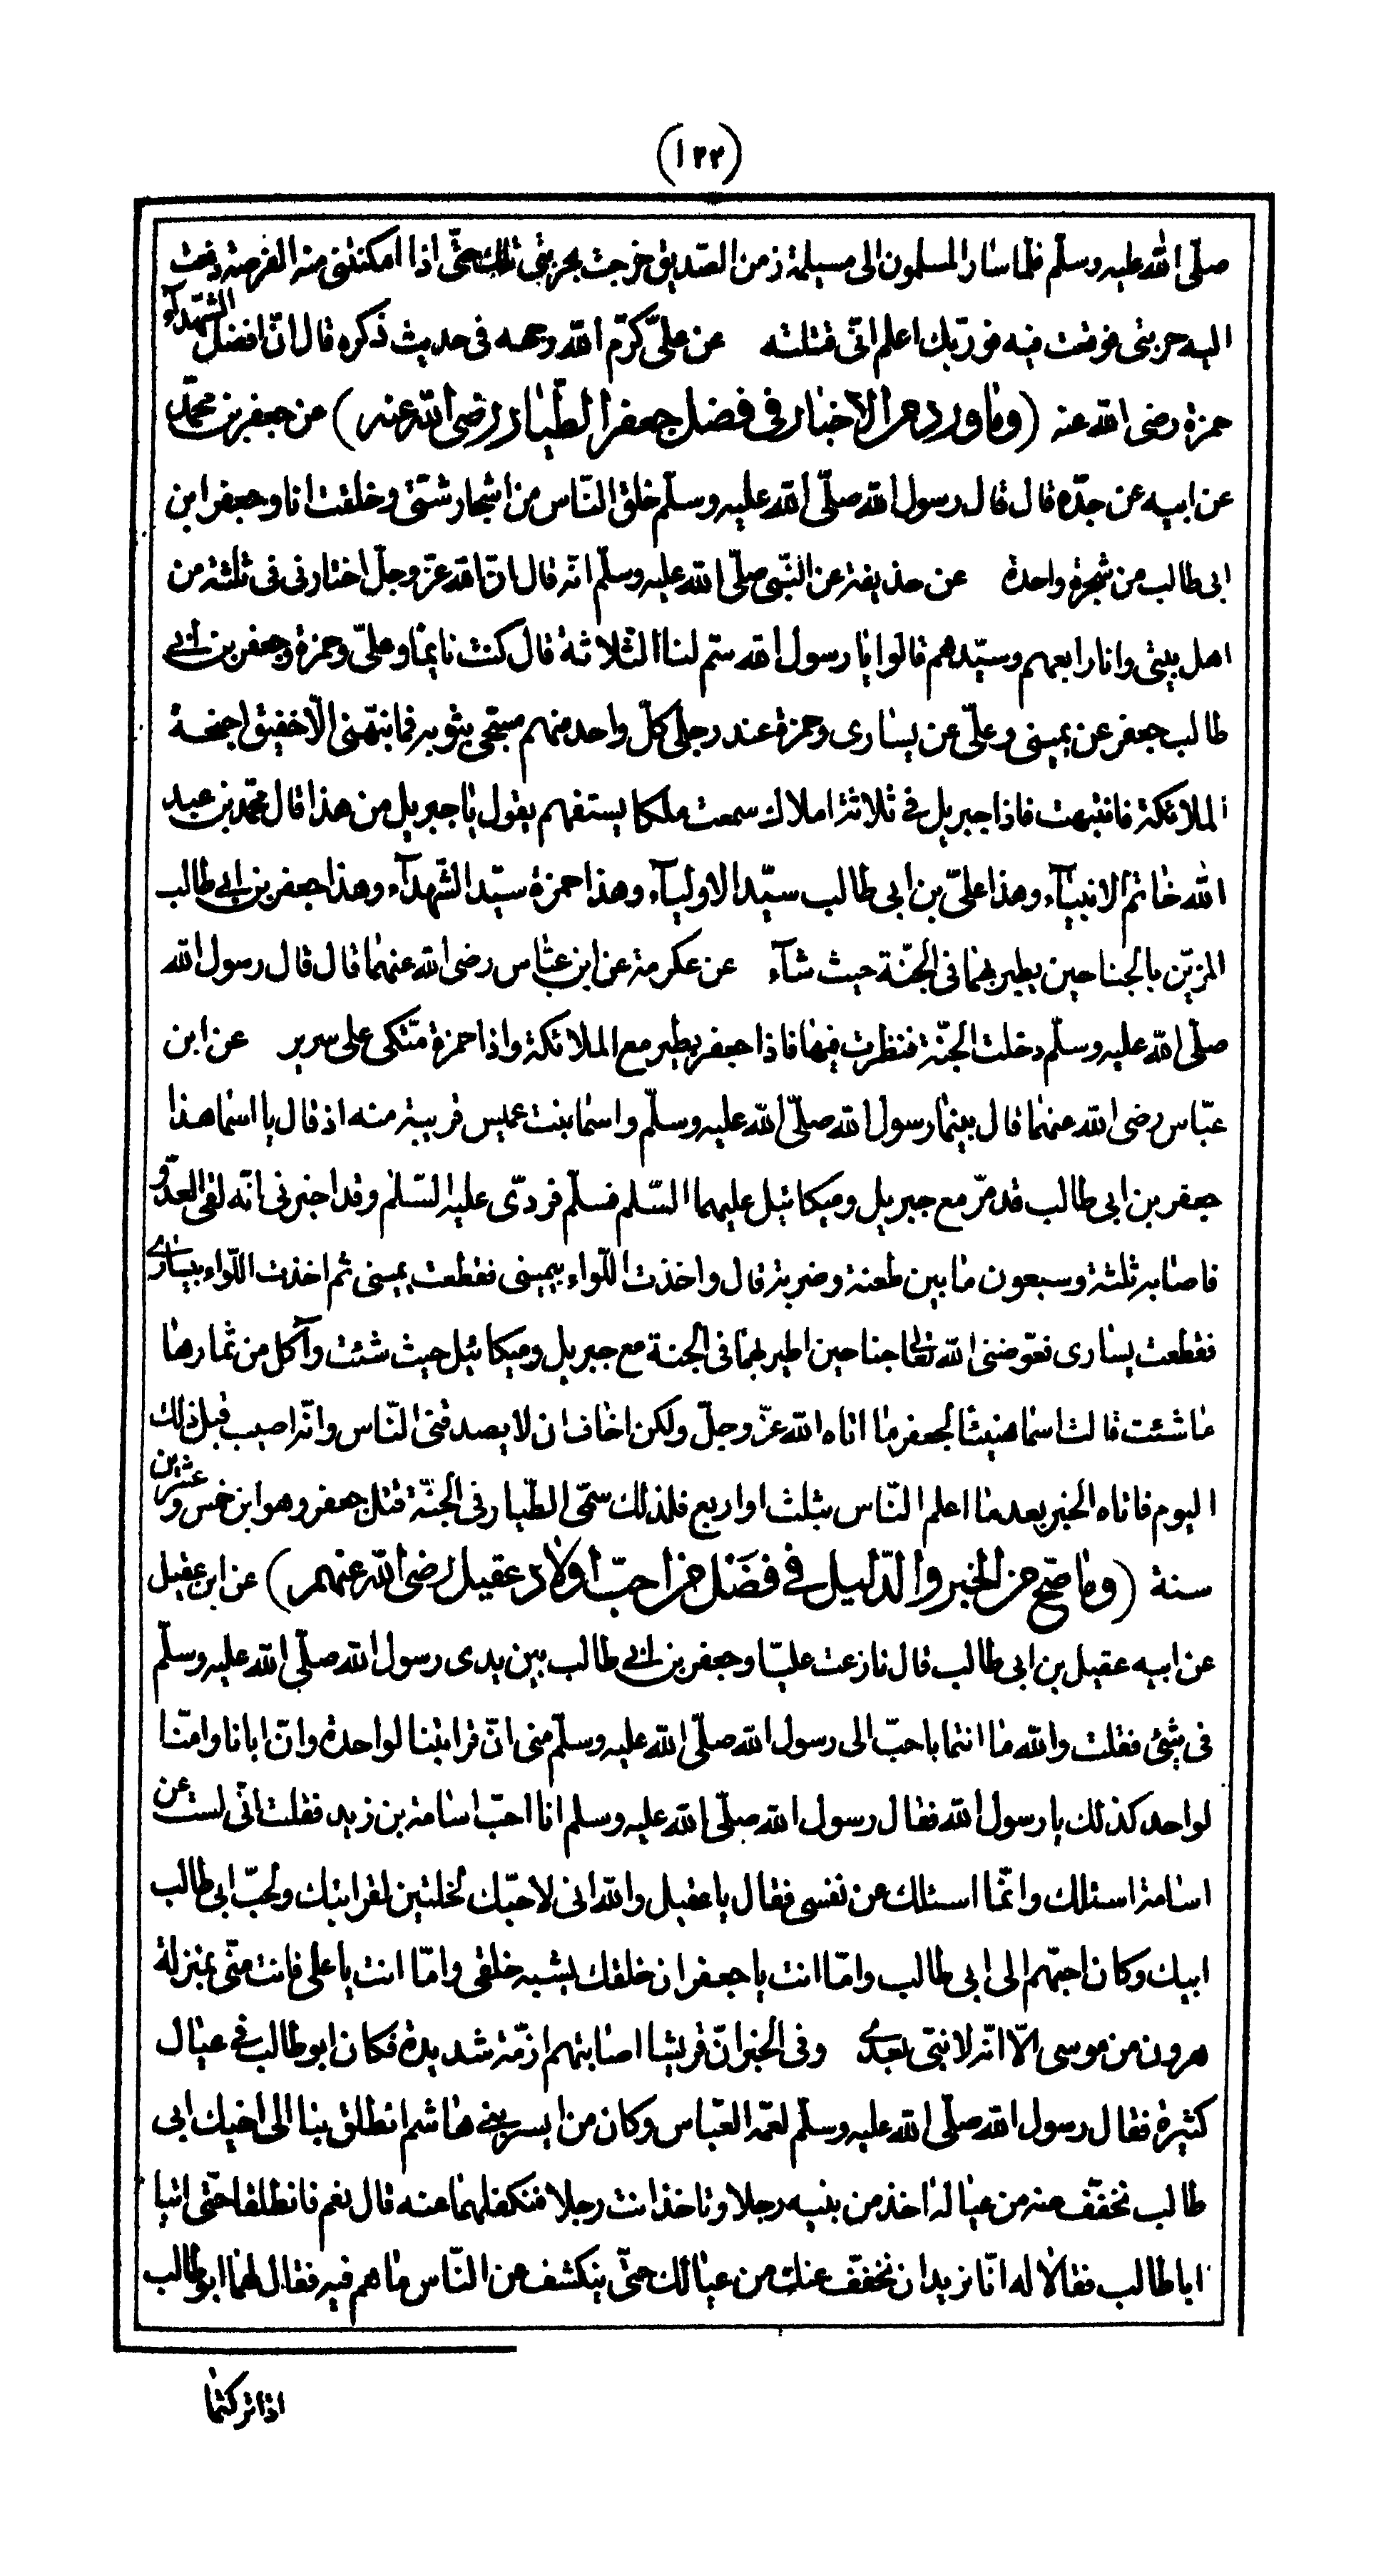 (١٢٢)
صلّى الله عليه وسلّم فلمّا سار المسلمون الى مسيلمة زمن الصّديق خرجت بحربتى تلك حتّى اذا امكنتنى منه الفرصة دفعت
اليه حربتى فوقعت فيه فوربّك اعلم انّى قتلته عن علىّ كرّم الله وجهه فى حديث ذكره قال انّ افضل الشّهدآء
حمزة رضى الله عنه (وما ورد من الاخبار فى فضل جعفر الطّيار رضى الله عنه) عن جعفر بن محمّد
عن ابيه عن جدّه قال قال رسول الله صلّى الله عليه وسلّم خلق النّاس من اشجار شتّى وخلقت انا وجعفر ابن
ابى طالب من شجرة واحدة عن حذيفة عن النّبى صلّى الله عليه وسلّم انّه قال انّ الله عزّ وجلّ اختارنى فى ثلثة من
اهل بيتى وانا رابعهم وسيّدهم قالوا يا رسول الله سمّ لنا الثّلاثة قال كنت نايما وعلىّ وحمزة وجعفر بن ابى
طالب جعفر عن يمينى وعلىّ عن يسارى وحمزة عند رجلى كلّ واحد منهم مسجّى بثوبه فما نبّهنى الّا خفيق اجنحة
الملائكة فانتبهت فاذا جبريل فى ثلاثة املاك سمعت ملكا يستفهم يقول يا جبريل من هذا قال محمّد بن عبد
الله خاتم الانبيآء وهذا علىّ بن ابى طالب سيّد الاوليآء وهذا حمزة سيّد الشّهدآء وهذا جعفر بن ابى طالب
المزيّن بالجناحين يطير بهما فى الجنّة حيث شآء عن عكرمة عن ابن عبّاس رضى الله عنهما قال قال رسول الله
صلّى الله عليه وسلّم دخلت الجنّة فنظرت فيها فاذا جعفر يطير مع الملائكة واذا حمزة متّكى على سرير عن ابن
عبّاس رضى الله عنهما قال بينما رسول الله صلّى الله عليه وسلّم واسما بنت عميس قريبة منه اذ قال يا اسما هذا
جعفر بن ابى طالب قد مرّ مع جبريل وميكائيل عليهما السّلم فسلّم فردّى عليه السّلام وقد اخبرنى انّه لقى العدّو
فاصابه ثلثة وسبعون ما بين طعنة وضربة قال واخذت اللّواء بيمينى فقطعت يمينى ثم اخذت اللّواء بيسارى
فقطعت يسارى فعوّضنى الله تعالى جناحين اطير بهما فى الجنة مع جبريل وميكائيل حيث شئت وآكل من ثمارها
ما شئت قالت اسما هنيئا لجعفر ما اتاه الله عزّ وجلّ ولكن اخاف ان لا يصدقنى النّاس وانّه اصيب قبل ذلك
اليوم فاتاه الخبر بعد ما اعلم النّاس بثلث او اربع فلذلك سمّى الطّيار فى الجنّة قتل جعفر وهو ابن خمس وعشرين
سنة (وما صحّ من الخبر والدّليل فى فضل من احبّ اولاد عقيل رضى الله عنهم) عن ابن عقيل
عن ابيه عقيل بن ابى طالب قال نازعت عليّا وجعفر بن ابى طالب بين يدى رسول الله صلّى الله عليه وسلّم
فى شئ فقلت والله ما انتما باحبّ الى رسول الله صلّى الله عليه وسلّم منى انّ قرابتنا لواحدة وانّ ابانا وامّنا
لواحد كذلك يا رسول الله فقال رسول الله صلّى الله عليه وسلم انا احبّ اسامة بن زيد فقلت انّى لست عن
اسامة اسئلك وانّما اسئلك عن نفسى فقال يا عقيل والله انى لاحبّك لخلتين لقرابتك ولحبّ ابى طالب
ابيك وكان احبّهم الى ابى طالب وامّا انت يا جعفر ان خلقك يشبه خلقى وامّا انت يا على فانت منّى بمنزلة
هرون من موسى الّا انّه لا نبّى بعدى وفى الخبر انّ قريشا اصابتهم ازمّة شديدة فكان ابو طالب فى عيال
كثيرة فقال رسول الله صلّى الله عليه وسلّم لعمّه العبّاس وكان من ايسر بنى هاشم انطلق بنا الى اخيك ابى
طالب نخفّف عنه من عياله اخذ من بنيه رجلا وتاخذ انت رجلا فنكفلهما عنه قال نعم فانطلقا حتّى اتيا
ابا طالب فقالا له انّا نريد ان نخفّف عنك من عيالك حتّى ينكشف عن النّاس ما هم فيه فقال لهما ابو طالب
اذا تركتما